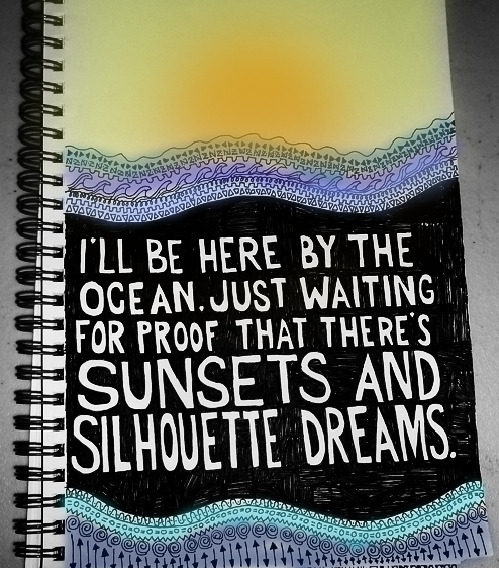 I'LL BE HERE BY THE
OCEAN. JUST WAITING
FOR PROOF THAT THERE'S
SUNSETS AND
SILHOUETTE DREAMS.